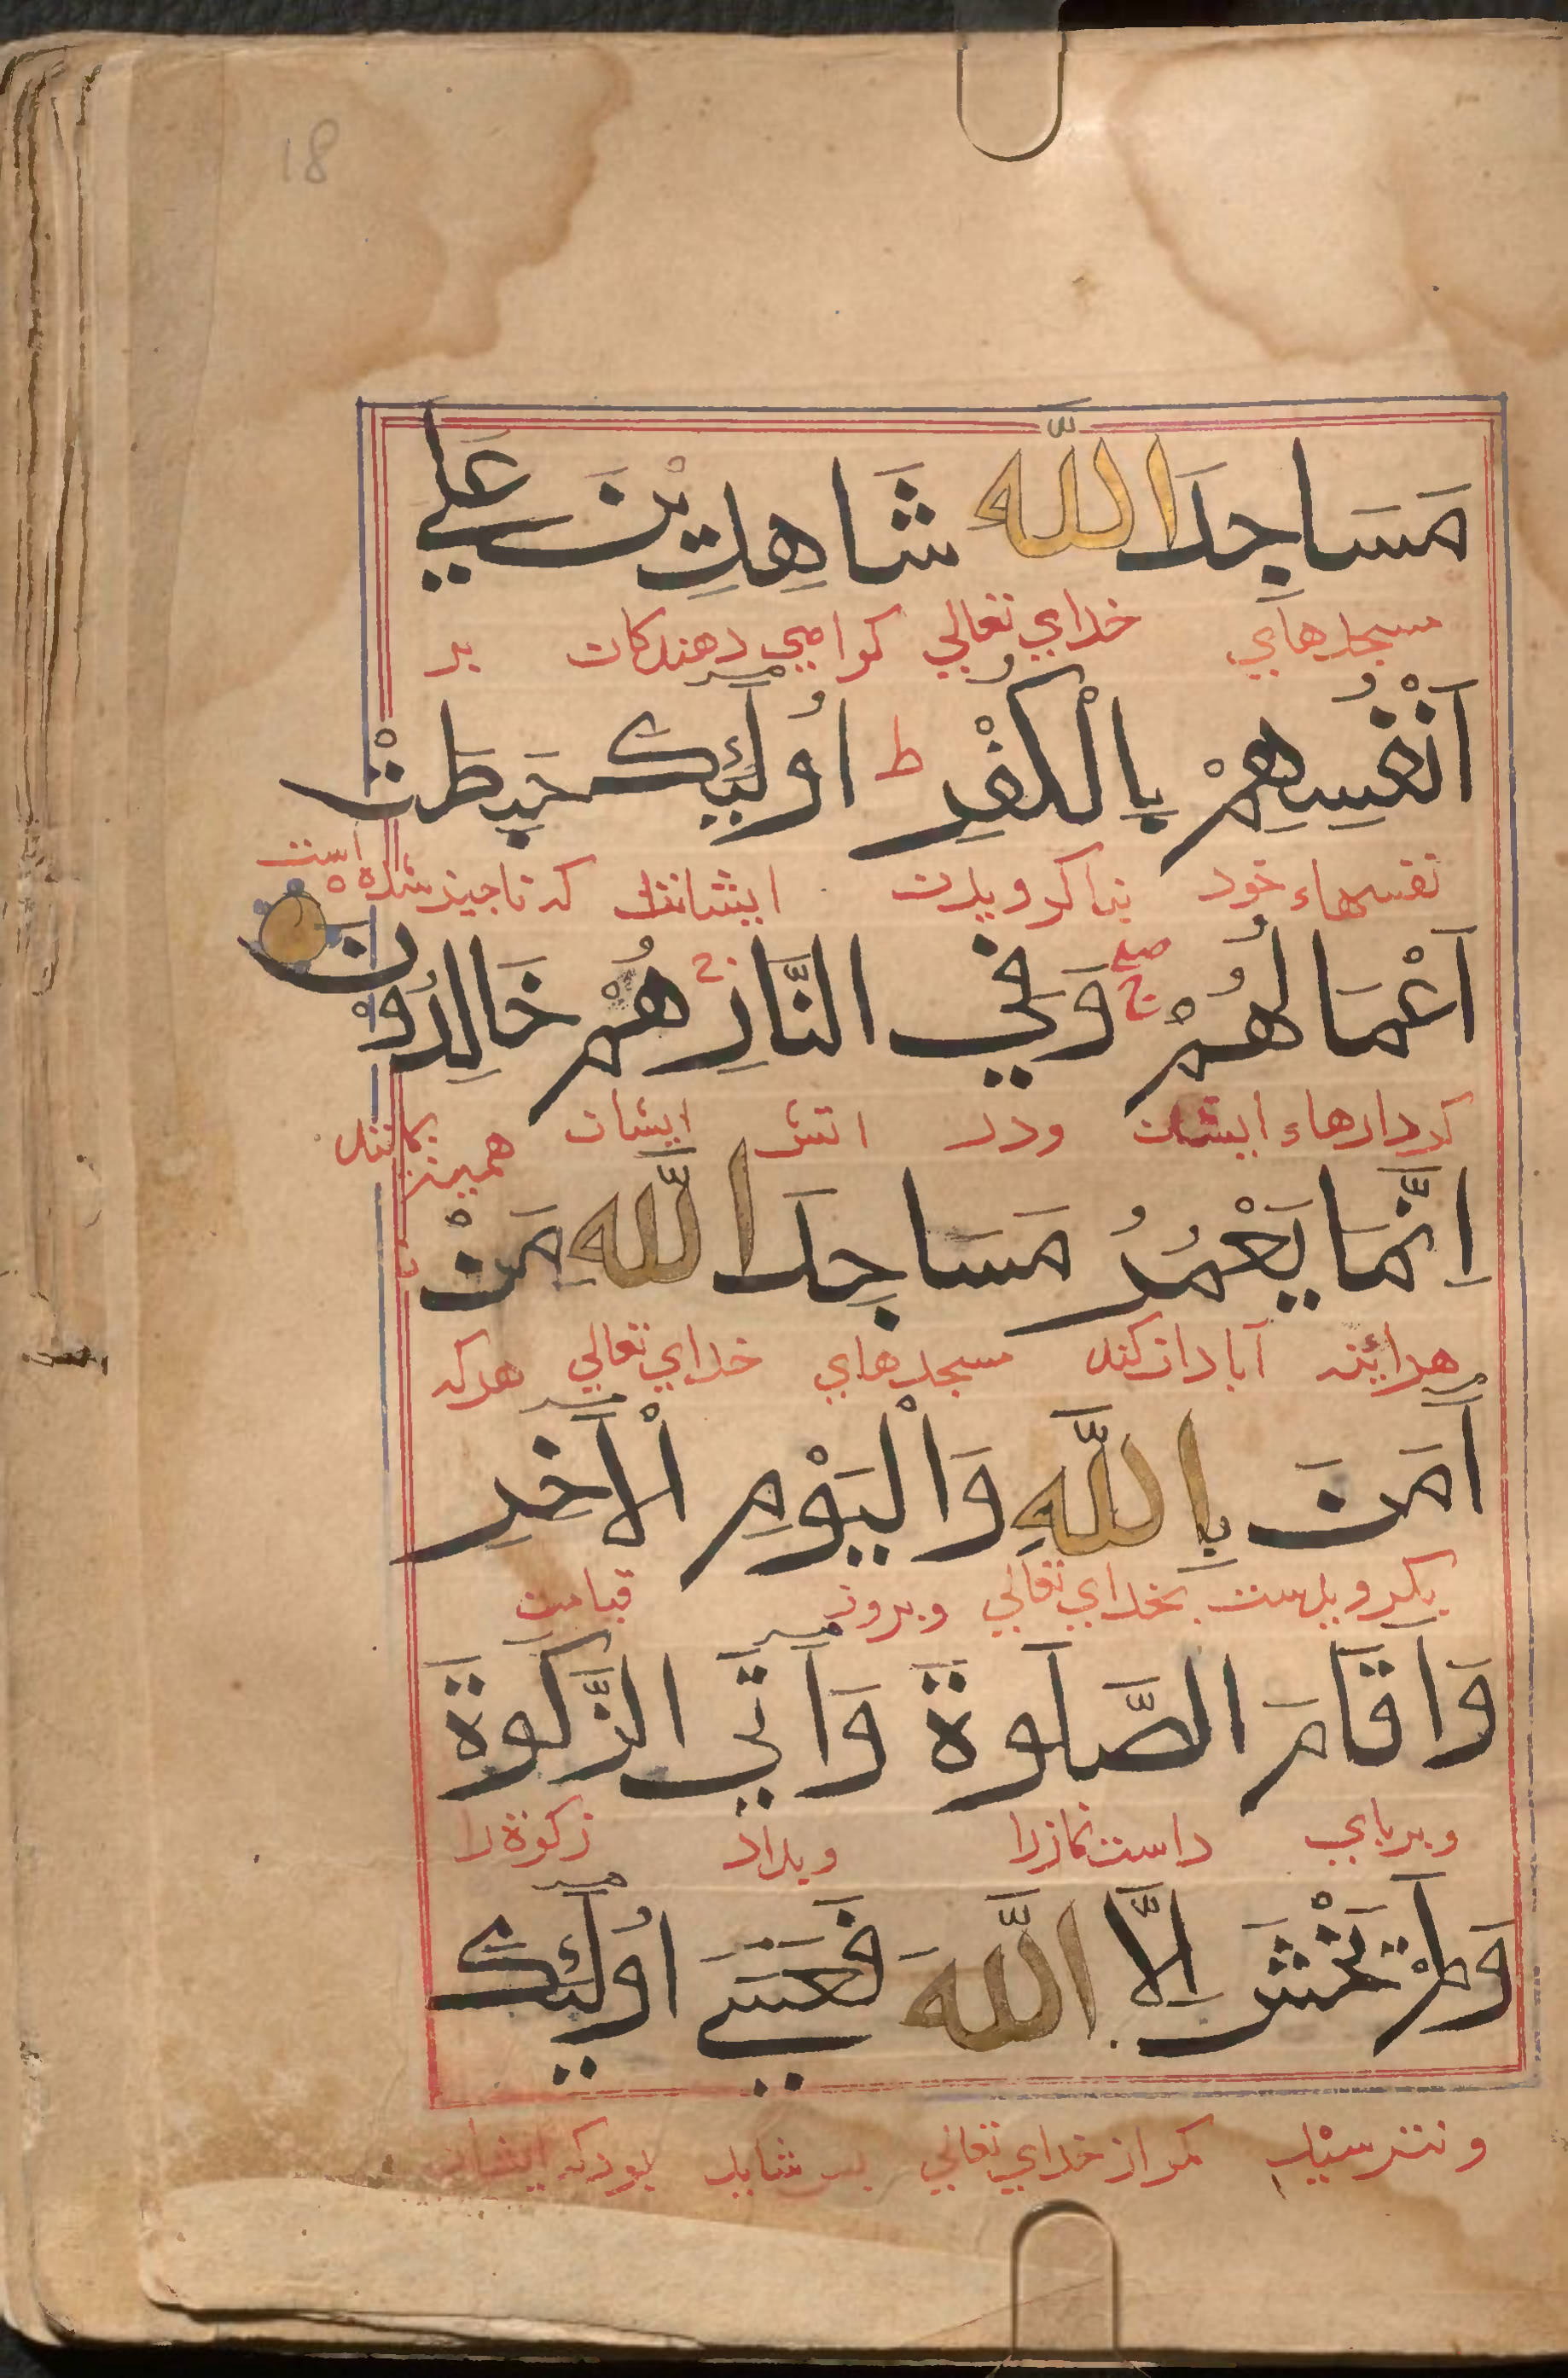 18
مَسَاجِدَ اللّٰهِ شَاهِدِيْنَ عَلٰي
مسجدهاي خداي تعالي كوامي دهندكان بر
اَنْفُسِهِمْ بِالْكُفْرِ ط اُولٰٓئِكَ حَبِطَتْ
نفسهاء خود بنا كرويدن ايشانند كه ناچيز شده است
اَعْمَالُهُمْ صلے ج وَفِي النَّارِ هُمْ خَالِدُوْنَ
كردارهاء ايشان ودر اتش ايشان هميشه مانند
اِنَّمَا يَعْمُرُ مَسَاجِدَ اللّٰهِ مَنْ
هرائينه آبادان كند مسجدهاي خداي تعالي هركه
اٰمَنَ بِاللّٰهِ وَالْيَوْمِ الْاٰخِرِ
بكرويدست بخداي تعالي وبروز قيامت
وَاَقَامَ الصَّلٰوةَ وَاٰتَي الزَّكٰوةَ
وبرپاي داست نمازرا وبداد زكوة را
وَلَمْ يَخْشَ اِلَّا اللّٰهَ فَعَسٰٓي اُولٰٓئِكَ
ونترسيد مكر از خداي تعالي پس شايد بود كه ايشان